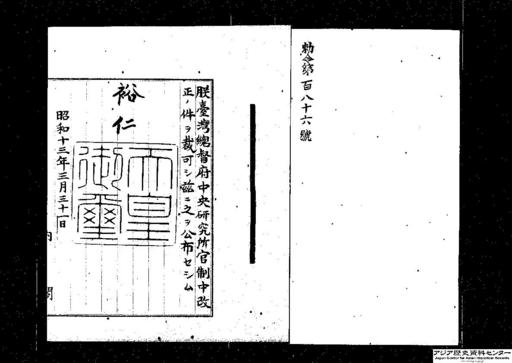 勅令第百八十六號
朕臺灣總督府中央研究所官制中改
正ノ件ヲ裁可シ茲ニ之ヲ公布セシム
裕仁
天皇
御璽
昭和十三年三月三十一日
内閣
アジア歴史資料センター
Japan Center for Asian Historical Records